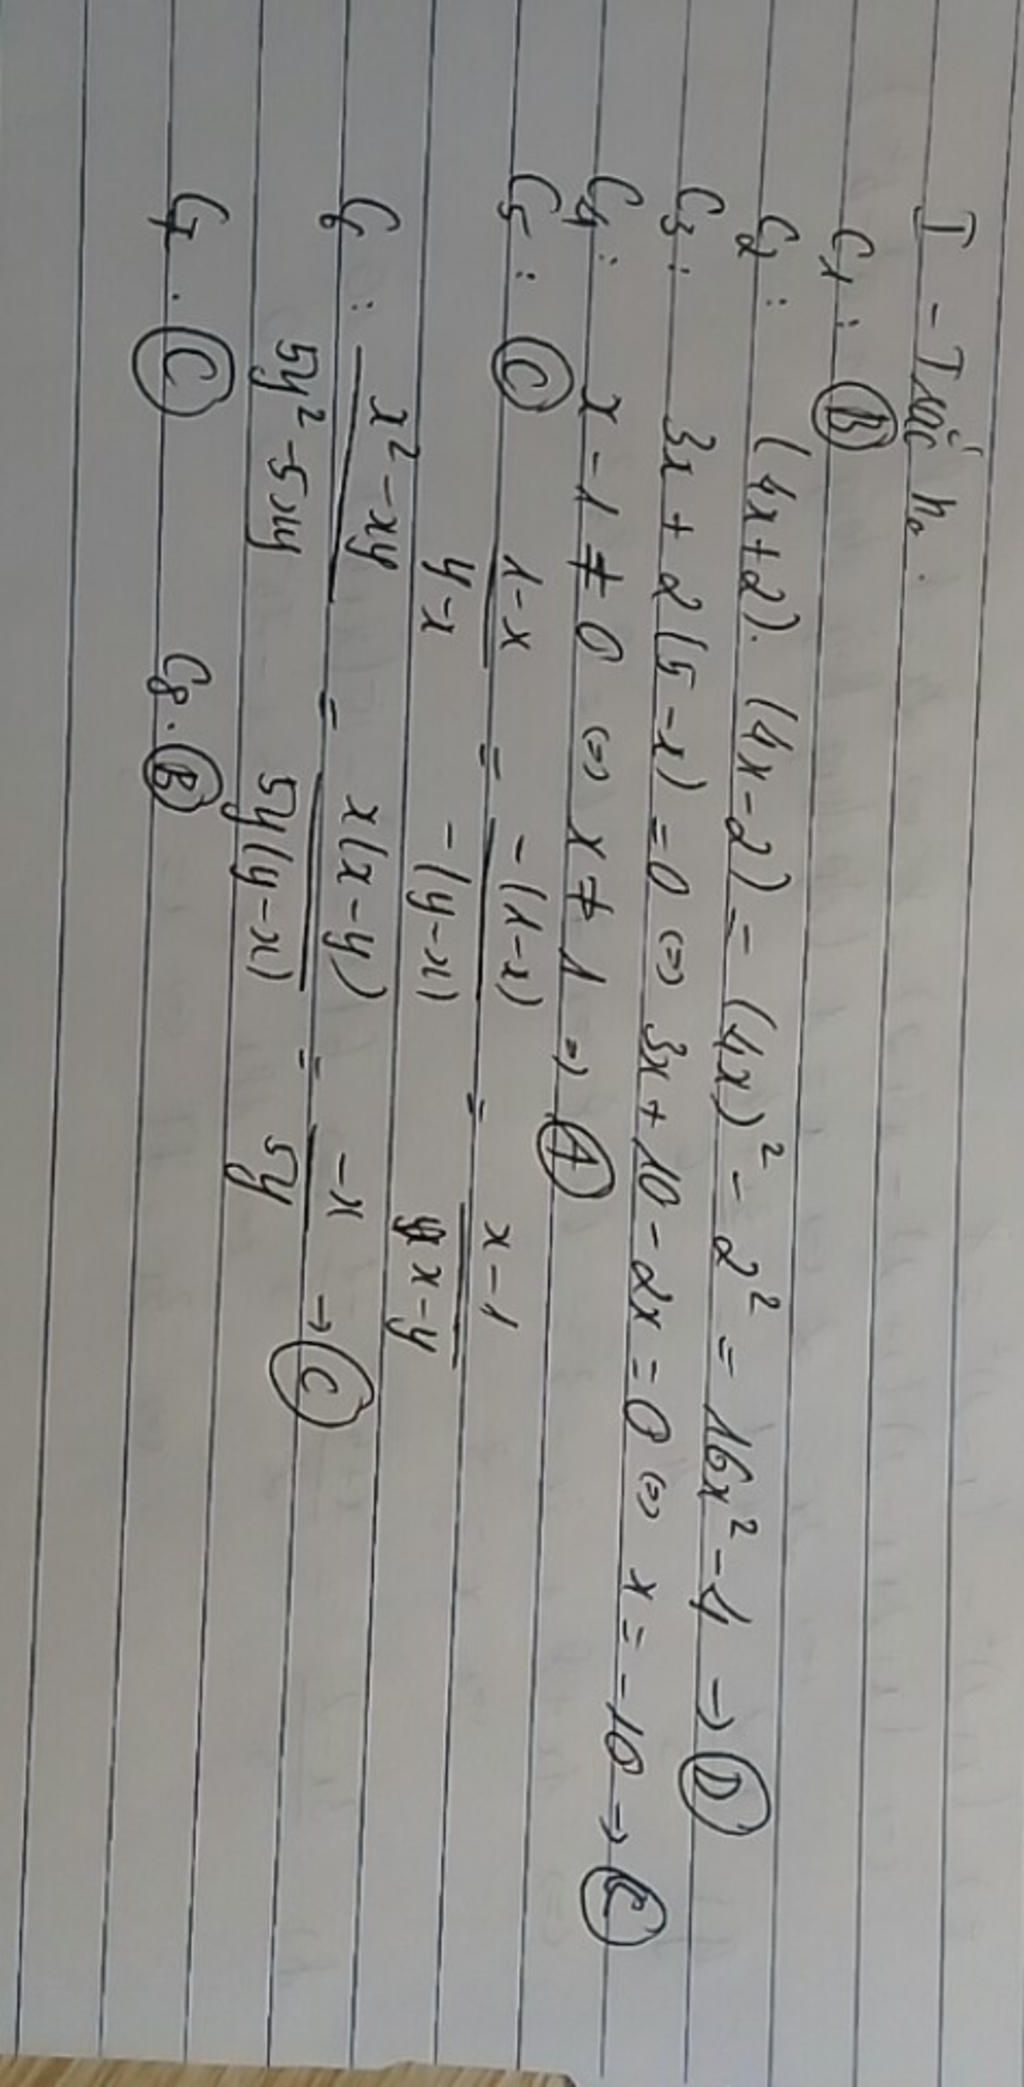 I - Trắc no.
C1 : B
C2 : (4x+2). (4x-2) = (4x)² - 2² = 16x² - 4 → D
C3 : 3x + 2(5-x) = 0 ⇔ 3x + 10 - 2x = 0 ⇔ x = -10 → C
C4 : x - 1 ≠ 0 ⇔ x ≠ 1 ⇒ A
C5 : C (1-x)/(y-x) = (-(1-x))/(-(y-x)) = (x-1)/(x-y)
C6 : (x²-xy)/(5y²-5xy) = (x(x-y))/(5y(y-x)) = (-x)/(5y) → C
C7. C C8. B